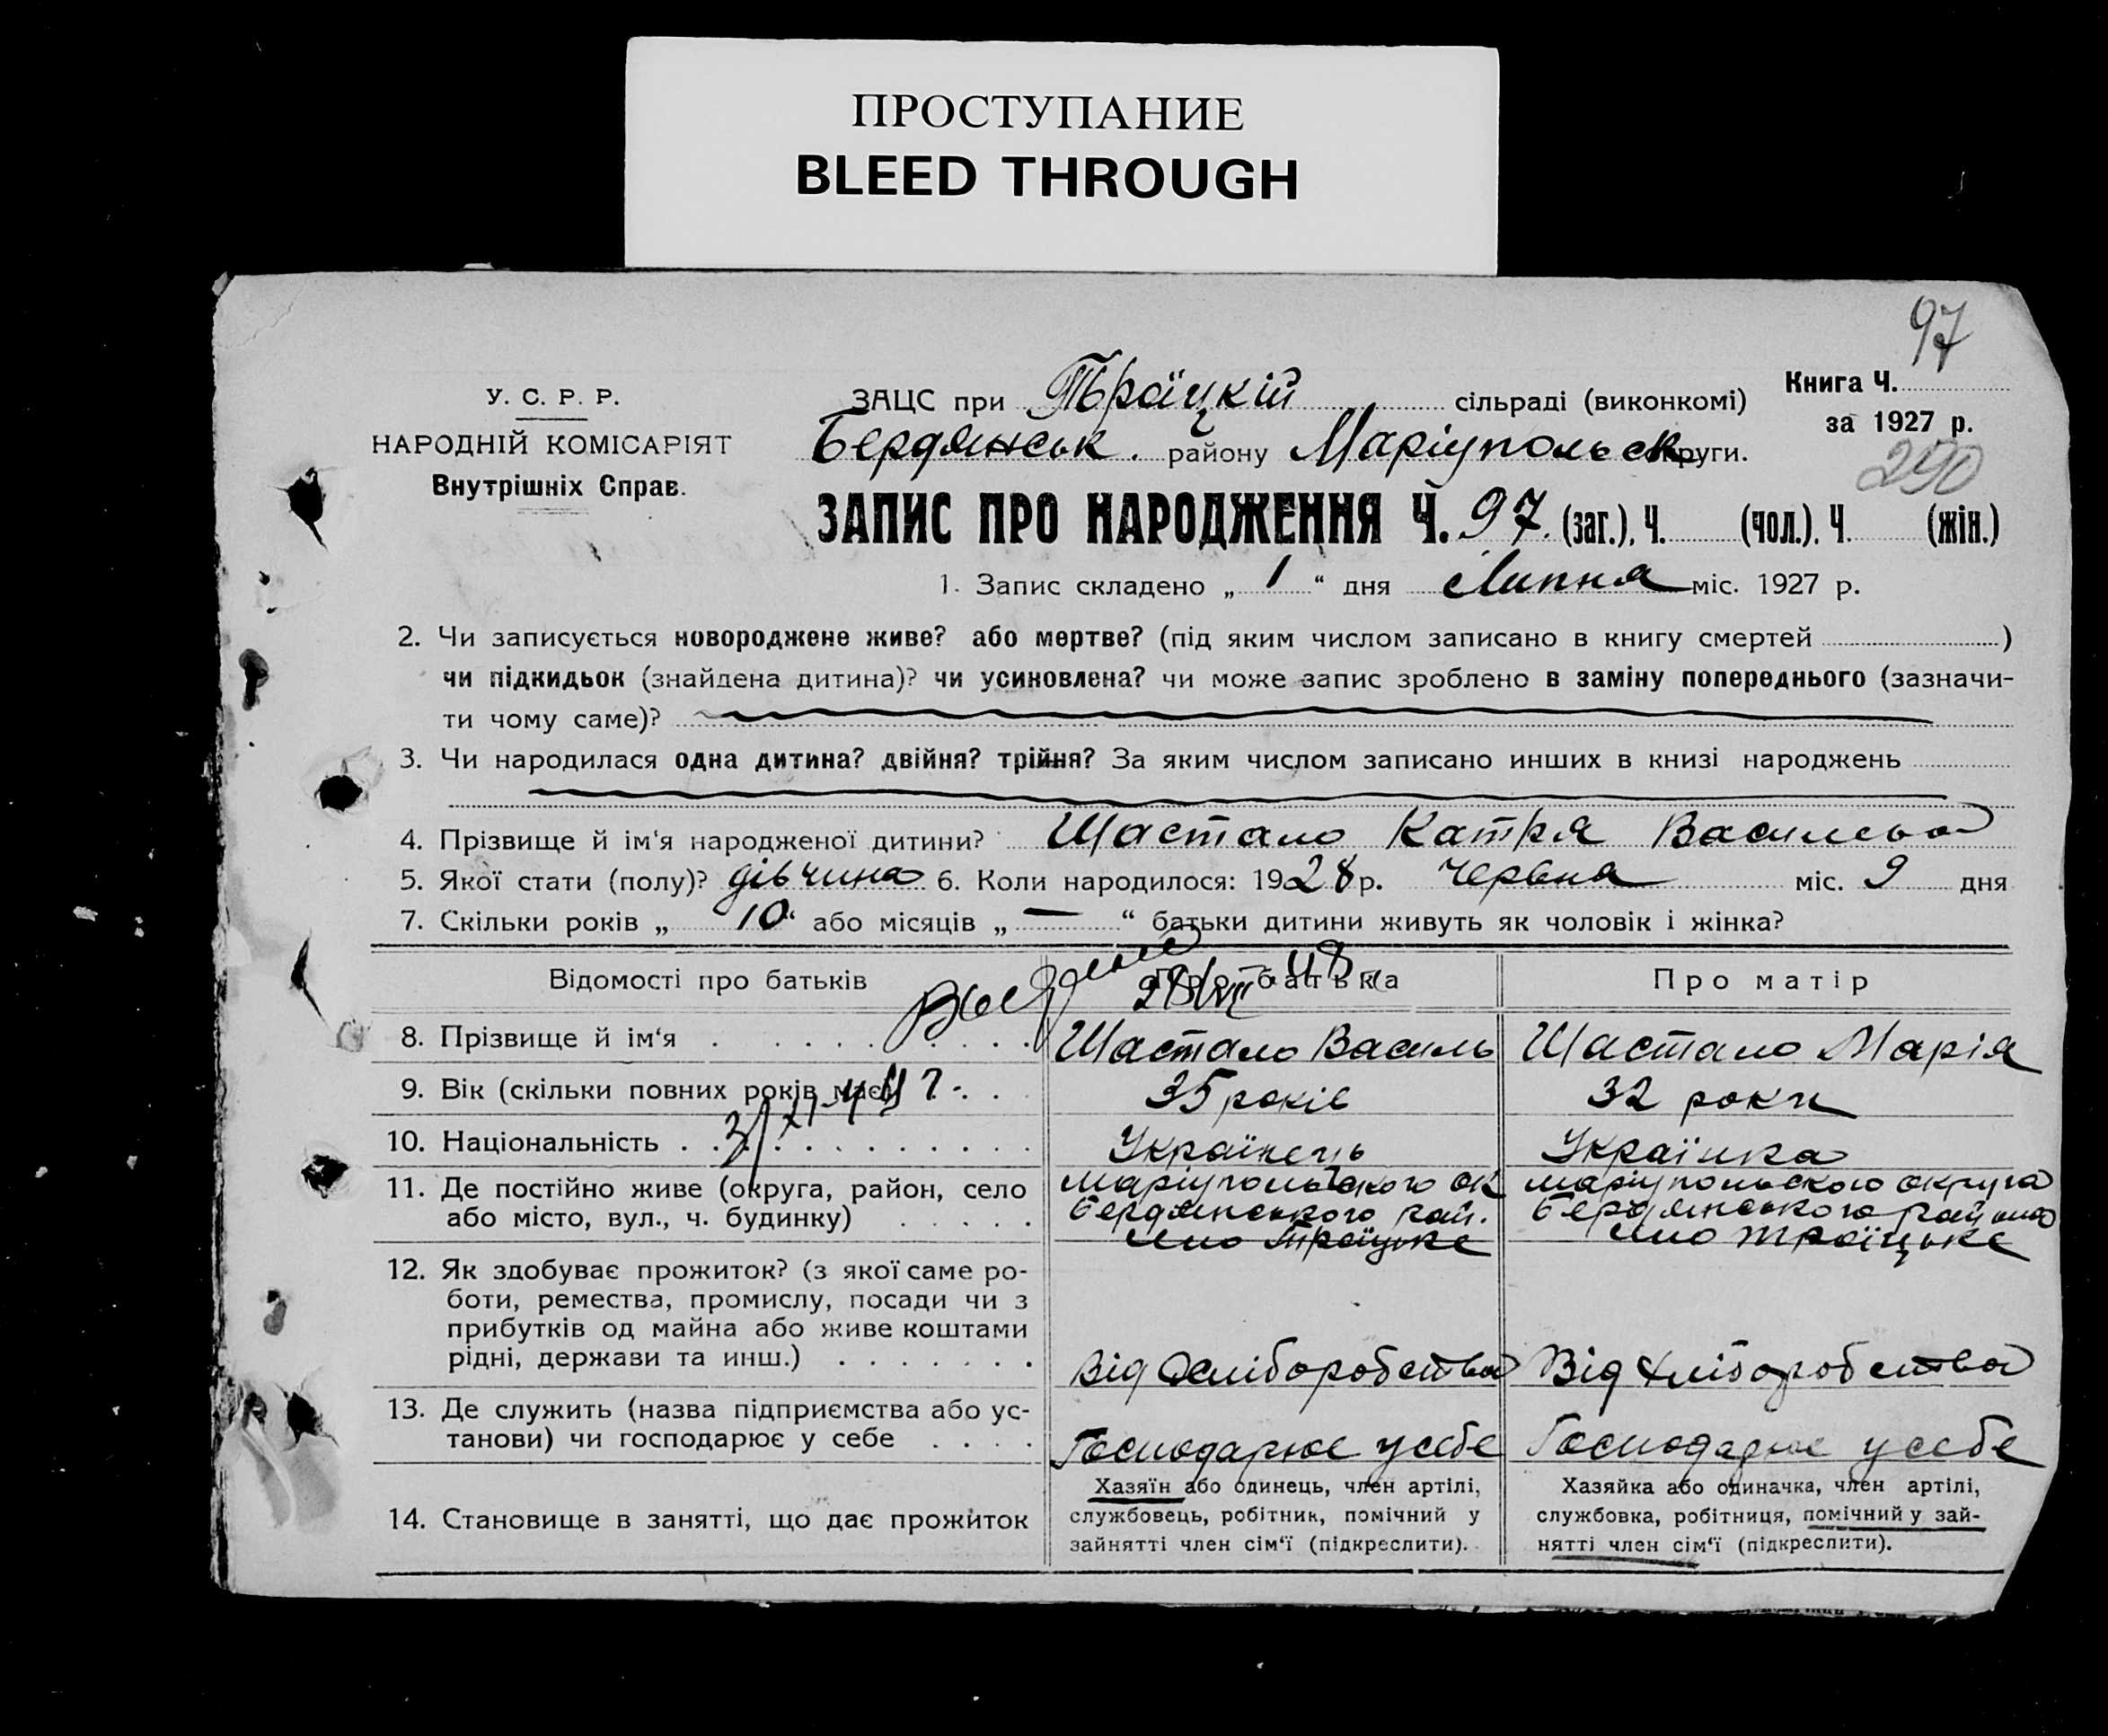 ПРОСТУПАНИЕ
BLEED THROUGH
97
У. С. Р. Р.
НАРОДНІЙ КОМІСАРІЯТ
Внутрішніх Справ.
ЗАЦС при Траїцкій сільраді (виконкомі)
Книга Ч.
за 1927 р.
Бердянськ. району Маріупольськ округи.
290
ЗАПИС ПРО НАРОДЖЕННЯ Ч. 97. (заг.), Ч. (чол.). Ч. (жін.)
1. Запис складено „ 1 “ дня Липня міс. 1927 р.
2. Чи записується новороджене живе? або мертве? (під яким числом записано в книгу смертей )
чи підкидьок (знайдена дитина)? чи усиновлена? чи може запис зроблено в заміну попереднього (зазначи-
ти чому саме)?
3. Чи народилася одна дитина? двійня? трійня? За яким числом записано инших в книзі народжень
4. Прізвище й ім‘я народженої дитини? Щастало Катря
5. Якої стати (полу)? дівчина 6. Коли народилося: 1928 р. Червня міс. 9 дня
7. Скільки років „ 10 “ або місяців „ — “ батьки дитини живуть як чоловік і жінка?
Відомості про батьків
Про батька
Про матір
8. Прізвище й ім‘я . . . . . . Щастало Василь Щастало Марія
9. Вік (скільки повних років має) ? . . . 35 років 32 роки
10. Національність . . . . . . . . . . . . Українець Українка
11. Де постійно живе (округа, район, село
або місто, вул., ч. будинку) . . . . .
Маріупольского ок
Бердянського рай.
село Траїцьке
маріупольского округа
Бердянського района
село Траїцьке
12. Як здобуває прожиток? (з якої саме ро-
боти, ремества, промислу, посади чи з
прибутків од майна або живе коштами
рідні, держави та инш.) . . . . . . .
Від Хліборобства
Від Хліборобства
13. Де служить (назва підприємства або ус-
танови) чи господарює у себе . . . .
Господарює у себе
Господарює у себе
14. Становище в занятті, що дає прожиток
Хазяїн або одинець, член артілі,
службовець, робітник, помічний у
зайнятті член сім‘ї (підкреслити).
Хазяйка або одиначка, член артілі,
службовка, робітниця, помічний у зай-
нятті член сім‘ї (підкреслити).